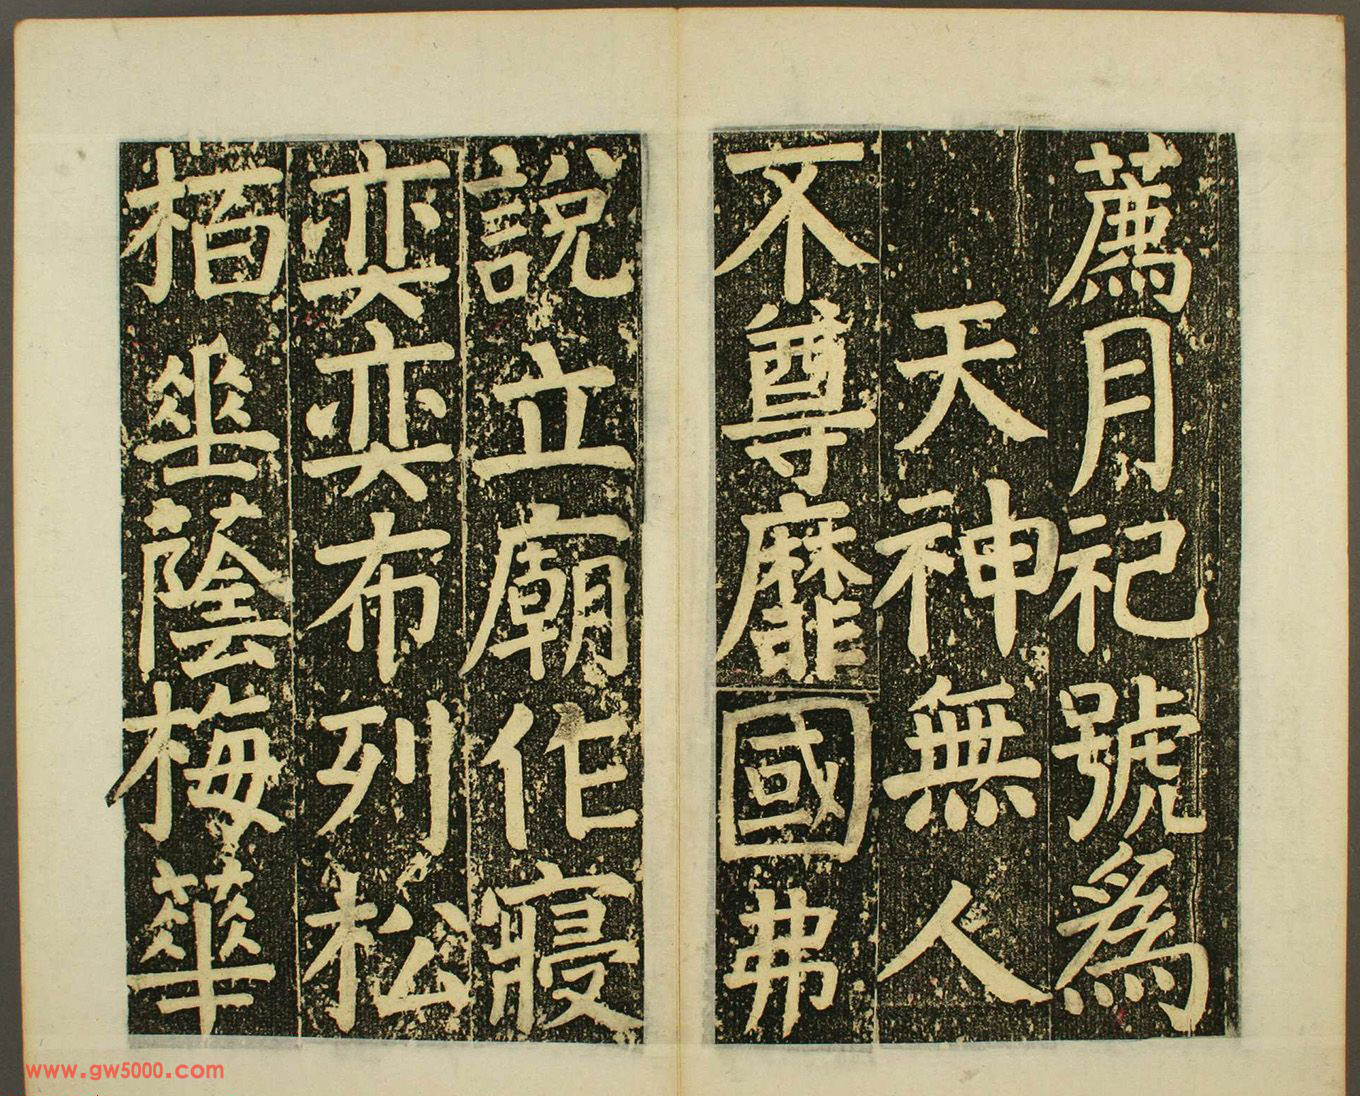 薦月祀號為
天神無人
不尊靡國弗
說立廟作寢
奕奕布列松
栢坐蔭梅華
www.gw5000.com